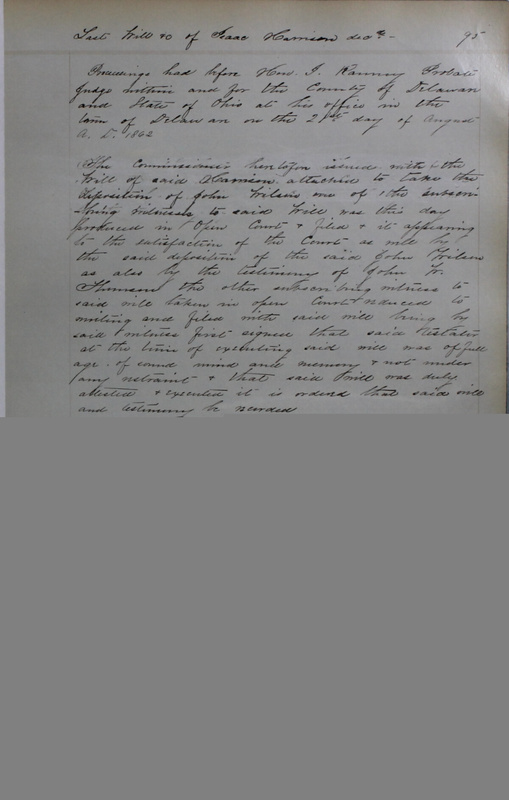 Last Will &c of Isaac Harrison decd - 95
Proceedings had before Hon. T. Ranney Probate
Judge within and for the County of Delaware
and State of Ohio at his office in the
town of Delaware on the 21st day of August
A. D. 1862
The Commission heretofore issued with the
Will of said Harrison attached to take the
deposition of John Wilson one of the subscri
bing witnesses to said Will was this day
produced in Open Court & filed & it appearing
to the satisfaction of the Court as well by
the said deposition of the said John Wilson
as also by the testimony of John W.
Thomson the other subscribing witness to
said will taken in open Court & reduced to
writing and filed with said will being by
said witness first signed that said testator
at the time of executing said will was of full
age of sound mind and memory & not under
any restraint & that said will was duly
attested & executed it is ordered that said will
and testimony be recorded